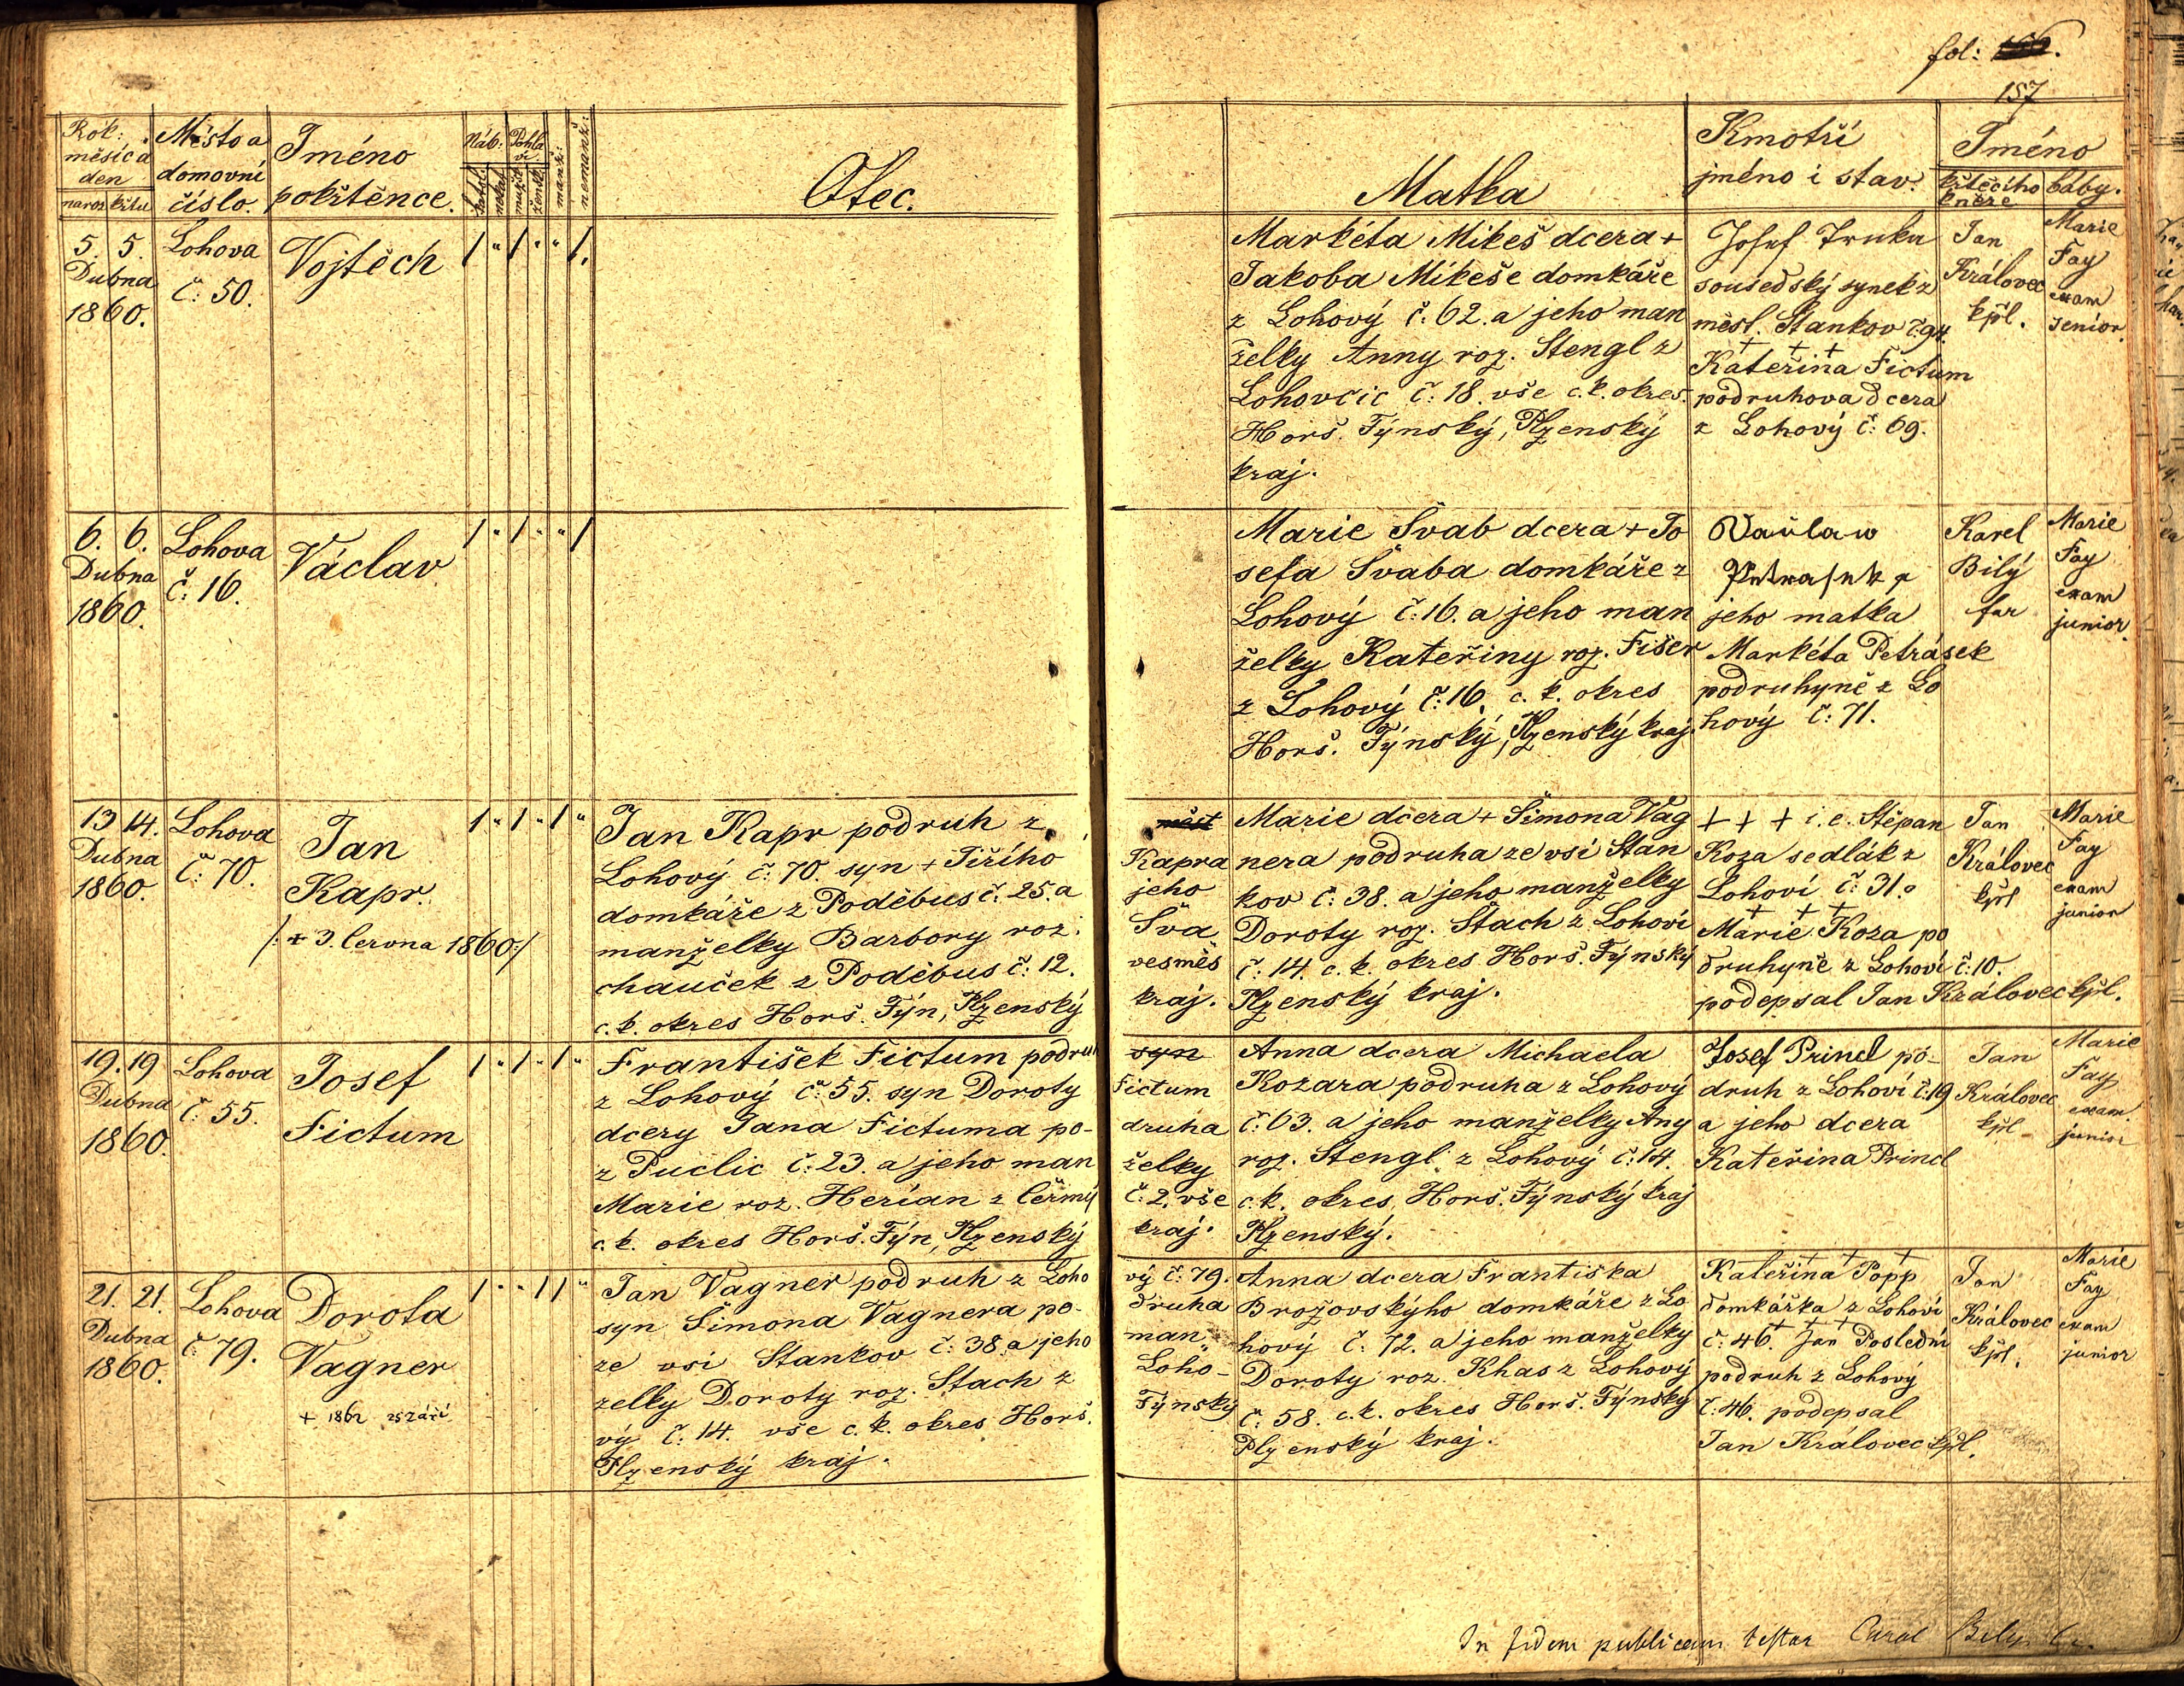 fol: 156.
157
Rok: měsíc a den
naroz křtu
Místo a domovní číslo.
Jméno pokřtěnce.
Náb:
katol.
nekat.
Pohlaví.
mužsk.
žensk.
manž:
nemanž:
Otec.
Matka
Kmotří
jméno i stav.
Jméno
křtěcího kněze
báby.
5. 5.
Dubna
1860.
Lohova
č: 50.
Vojtěch
1 " 1 " " 1.
Markéta Mikeš dcera +
Jakoba Mikeše domkáře
z Lohový č: 62. a jeho man
želky Anny roz. Stengl z
Lohovčic č: 18. vše c. k. okres.
Horš. Týnský, Plzenský
kraj.
Josef Truka
sousedský synek z
měst. Stankov č: 94.
+ + +
Kateřina Fictum
podruhova dcera
z Lohový č: 69.
Jan
Královec
kpl.
Marie
Fay
exam
senior.
6. 6.
Dubna
1860.
Lohova
č: 16.
Václav
1 " 1 " " 1
Marie Švab dcera + Jo
sefa Švaba domkáře z
Lohový č: 16. a jeho man
želky Kateřiny roz. Fišer
z Lohový č: 16. c. k. okres
Horš. Týnský, Plzenský kraj.
Vaclaw
Petrasek a
jeho matka
Markéta Petrásek
podruhyně z Lo
hový č: 71.
Karel
Bílý
far
Marie
Fay
exam
junior.
13 14.
Dubna
1860.
Lohova
č: 70.
Jan
Kapr.
/: + 3. června 1860 :/
1 " 1 " 1 "
Jan Kapr podruh z
Lohový č: 70. syn + Jiřího
domkáře z Poděbus č: 25. a
manželky Barbory roz.
chauček z Poděbus č: 12.
c. k. okres Horš. Týn, Plzenský
měst
Kapra
jeho
Sva
vesměs
kraj.
Marie dcera + Šimona Vag
nera podruha ze vsi Stan
kov č: 38. a jeho manželky
Doroty roz. Stach z Lohovi
č: 14. c. k. okres Horš. Týnský
Plzenský kraj.
+ + + i. e. Stěpan
Koza sedlák z
Lohoví č: 31.
+ + +
Marie Koza po
druhyně z Lohoví č: 10.
podepsal Jan Královec kpl.
Jan
Královec
kpl
Marie
Fay
exam
junior
19. 19
Dubna
1860.
Lohova
č: 55.
Josef
Fictum
1 " 1 " 1 "
František Fictum podruh
z Lohový č: 55. syn Doroty
dcery Jana Fictuma po-
z Puclic č: 23. a jeho man
Marie roz. Herían z Čermý
c. k. okres Horš. Týn, Plzenský
syn
Fictum
druha
želky
č: 2. vše
kraj.
Anna dcera Michaela
Kozara podruha z Lohový
č: 63. a jeho manželky Any
roz. Stengl z Lohový č: 14.
c. k. okres Horš. Týnský kraj
Plzenský.
Josef Princl po-
druh z Lohoví č: 19
a jeho dcera
Kateřina Princl
Jan
Královec
kpl
Marie
Fay
exam.
junior
21. 21.
Dubna
1860.
Lohova
č: 79.
Dorota
Vagner
+ 1862 25 září
1 " " 1 1 "
Jan Vagner podruh z Loho
syn Šimona Vagnera po-
ze vsi Stankov č: 38. a jeho
želky Doroty roz. Stach z
vý č: 14. vše c. k. okres Horš.
Plzenský kraj.
vý č: 79.
druha
man
Loho-
Týnský
Anna dcera Františka
Brožovskýho domkáře z Lo
hový č: 72. a jeho manželky
Doroty roz. Khas z Lohový
č: 58. c. k. okres Horš. Týnský
Plzenský kraj.
+ + +
Kateřina Popp
domkářka z Lohoví
+ + +
č: 46. Jan Poslední
podruh z Lohový
č: 46. podepsal
Jan Královec kpl.
Jan
Královec
kpl.
Marie
Fay
exam
junior
In fidem publicam testor Carol Bily